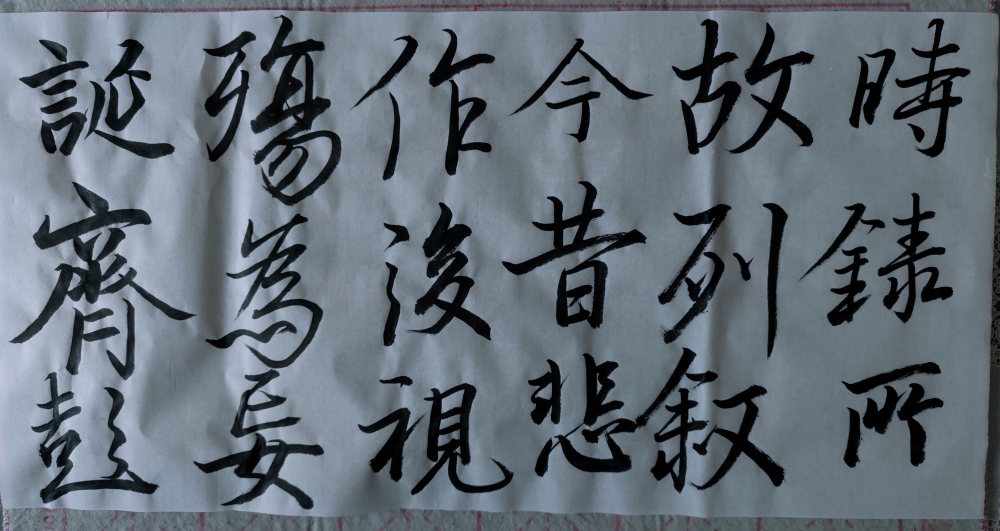 時録所
故列叙
今昔悲
作後視
殤為妄
誕齊彭